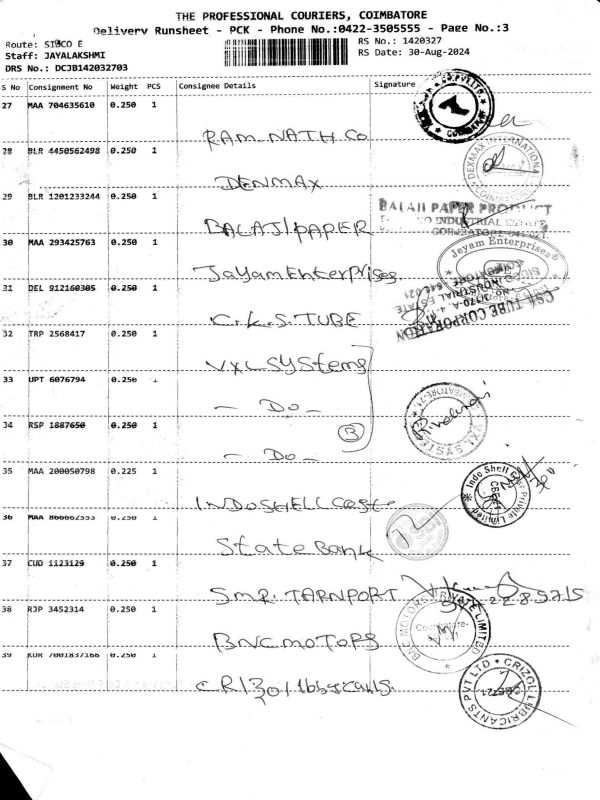 THE PROFESSIONAL COURIERS, COIMBATORE
Delivery Runsheet - PCK - Phone No.:0422-3505555 - Page No.:3
Route: SIDCO E
RS No.: 1420327
Staff: JAYALAKSHMI
RS Date: 30-Aug-2024
DRS No.: DCJB142032703
S No Consignment No Weight PCS Consignee Details Signature
27 MAA 704635610 0.250 1
RAM NATH CO
28 BLR 4450562498 0.250 1
DENMAX
DEXMAX INTERNATIONA
COIMBATORE
29 BLR 1201233244 0.250 1
BALAJI PAPER
BALAJI PAPER PRODUCT
INDUSTRIAL ESTATE
30 MAA 293425763 0.250 1
Jayam Enterprises
Jeyam Enterprises®
31 DEL 912160305 0.250 1
C.K.S. TUBE
CSK TUBE CORPORATION
32 TRP 2568417 0.250 1
VXL SYStems
33 UPT 6076794 0.250 1
- Do -
34 RSP 1887650 0.250 1
- Do -
3
35 MAA 200050798 0.225 1
INDOSHELL Cast
Indo Shell
Private Limited
36 MAA 0.250 1
State Bank
SBI
37 CUD 1123129 0.250 1
SMR. TARNPORT
38 RJP 3452314 0.250 1
BNC MOTORS
BNC MOTORS PRIVATE LIMITED
Coimbatore-
39 KUR 7001837166 0.250 1
GRIZOL LUBRICANTS PVT LTD